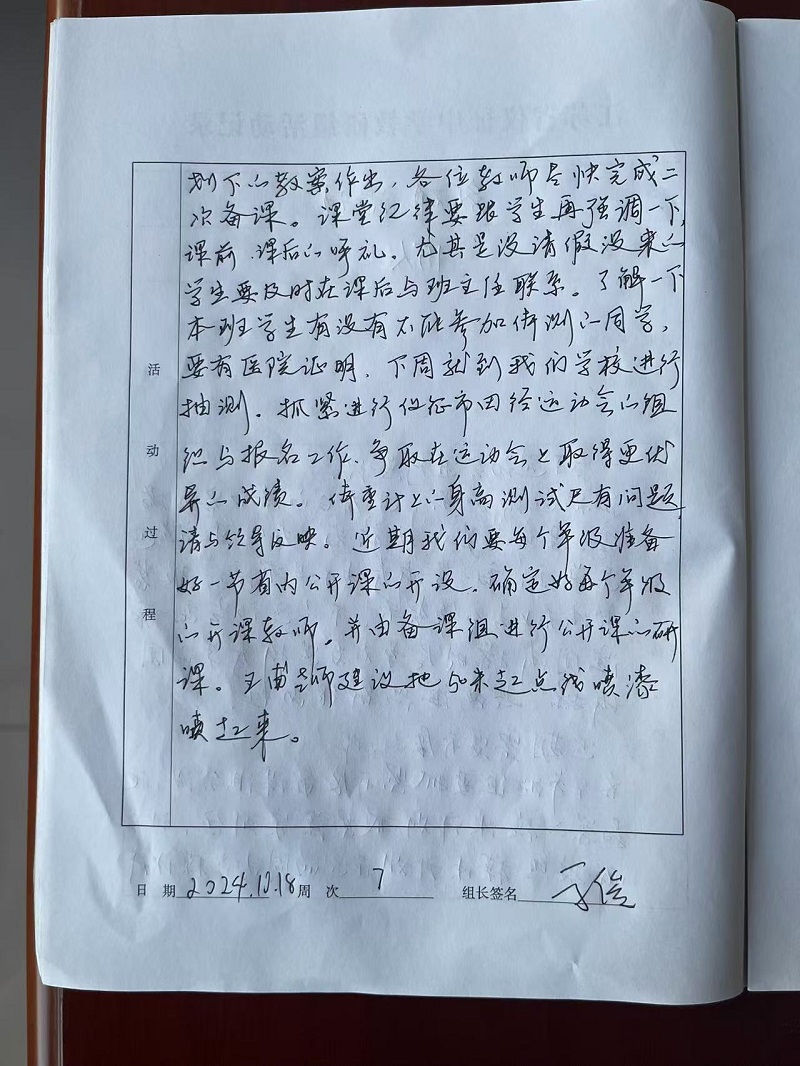 划下的教案作出，各位教师尽快完成二
次备课。课堂纪律要跟学生再强调一下，
课前、课后的呼礼。尤其是没请假没来的
学生要及时在课后与班主任联系。了解一下
本班学生有没有不能参加体测的同学，
要有医院证明，下周就到我们学校进行
抽测。抓紧进行仪征市田径运动会的组
织与报名工作，争取在运动会上取得更优
异的成绩。体重计上的身高测试尺有问题，
请与领导反映。近期我们要每个年级准备
好一节省内公开课的开设，确定好每个年级
的开课教师，并由备课组进行公开课的研
课。王甫老师建议把50米起点线喷漆
喷起来。
活
动
过
程
日 期 2024.10.18 周 次 7 组长签名